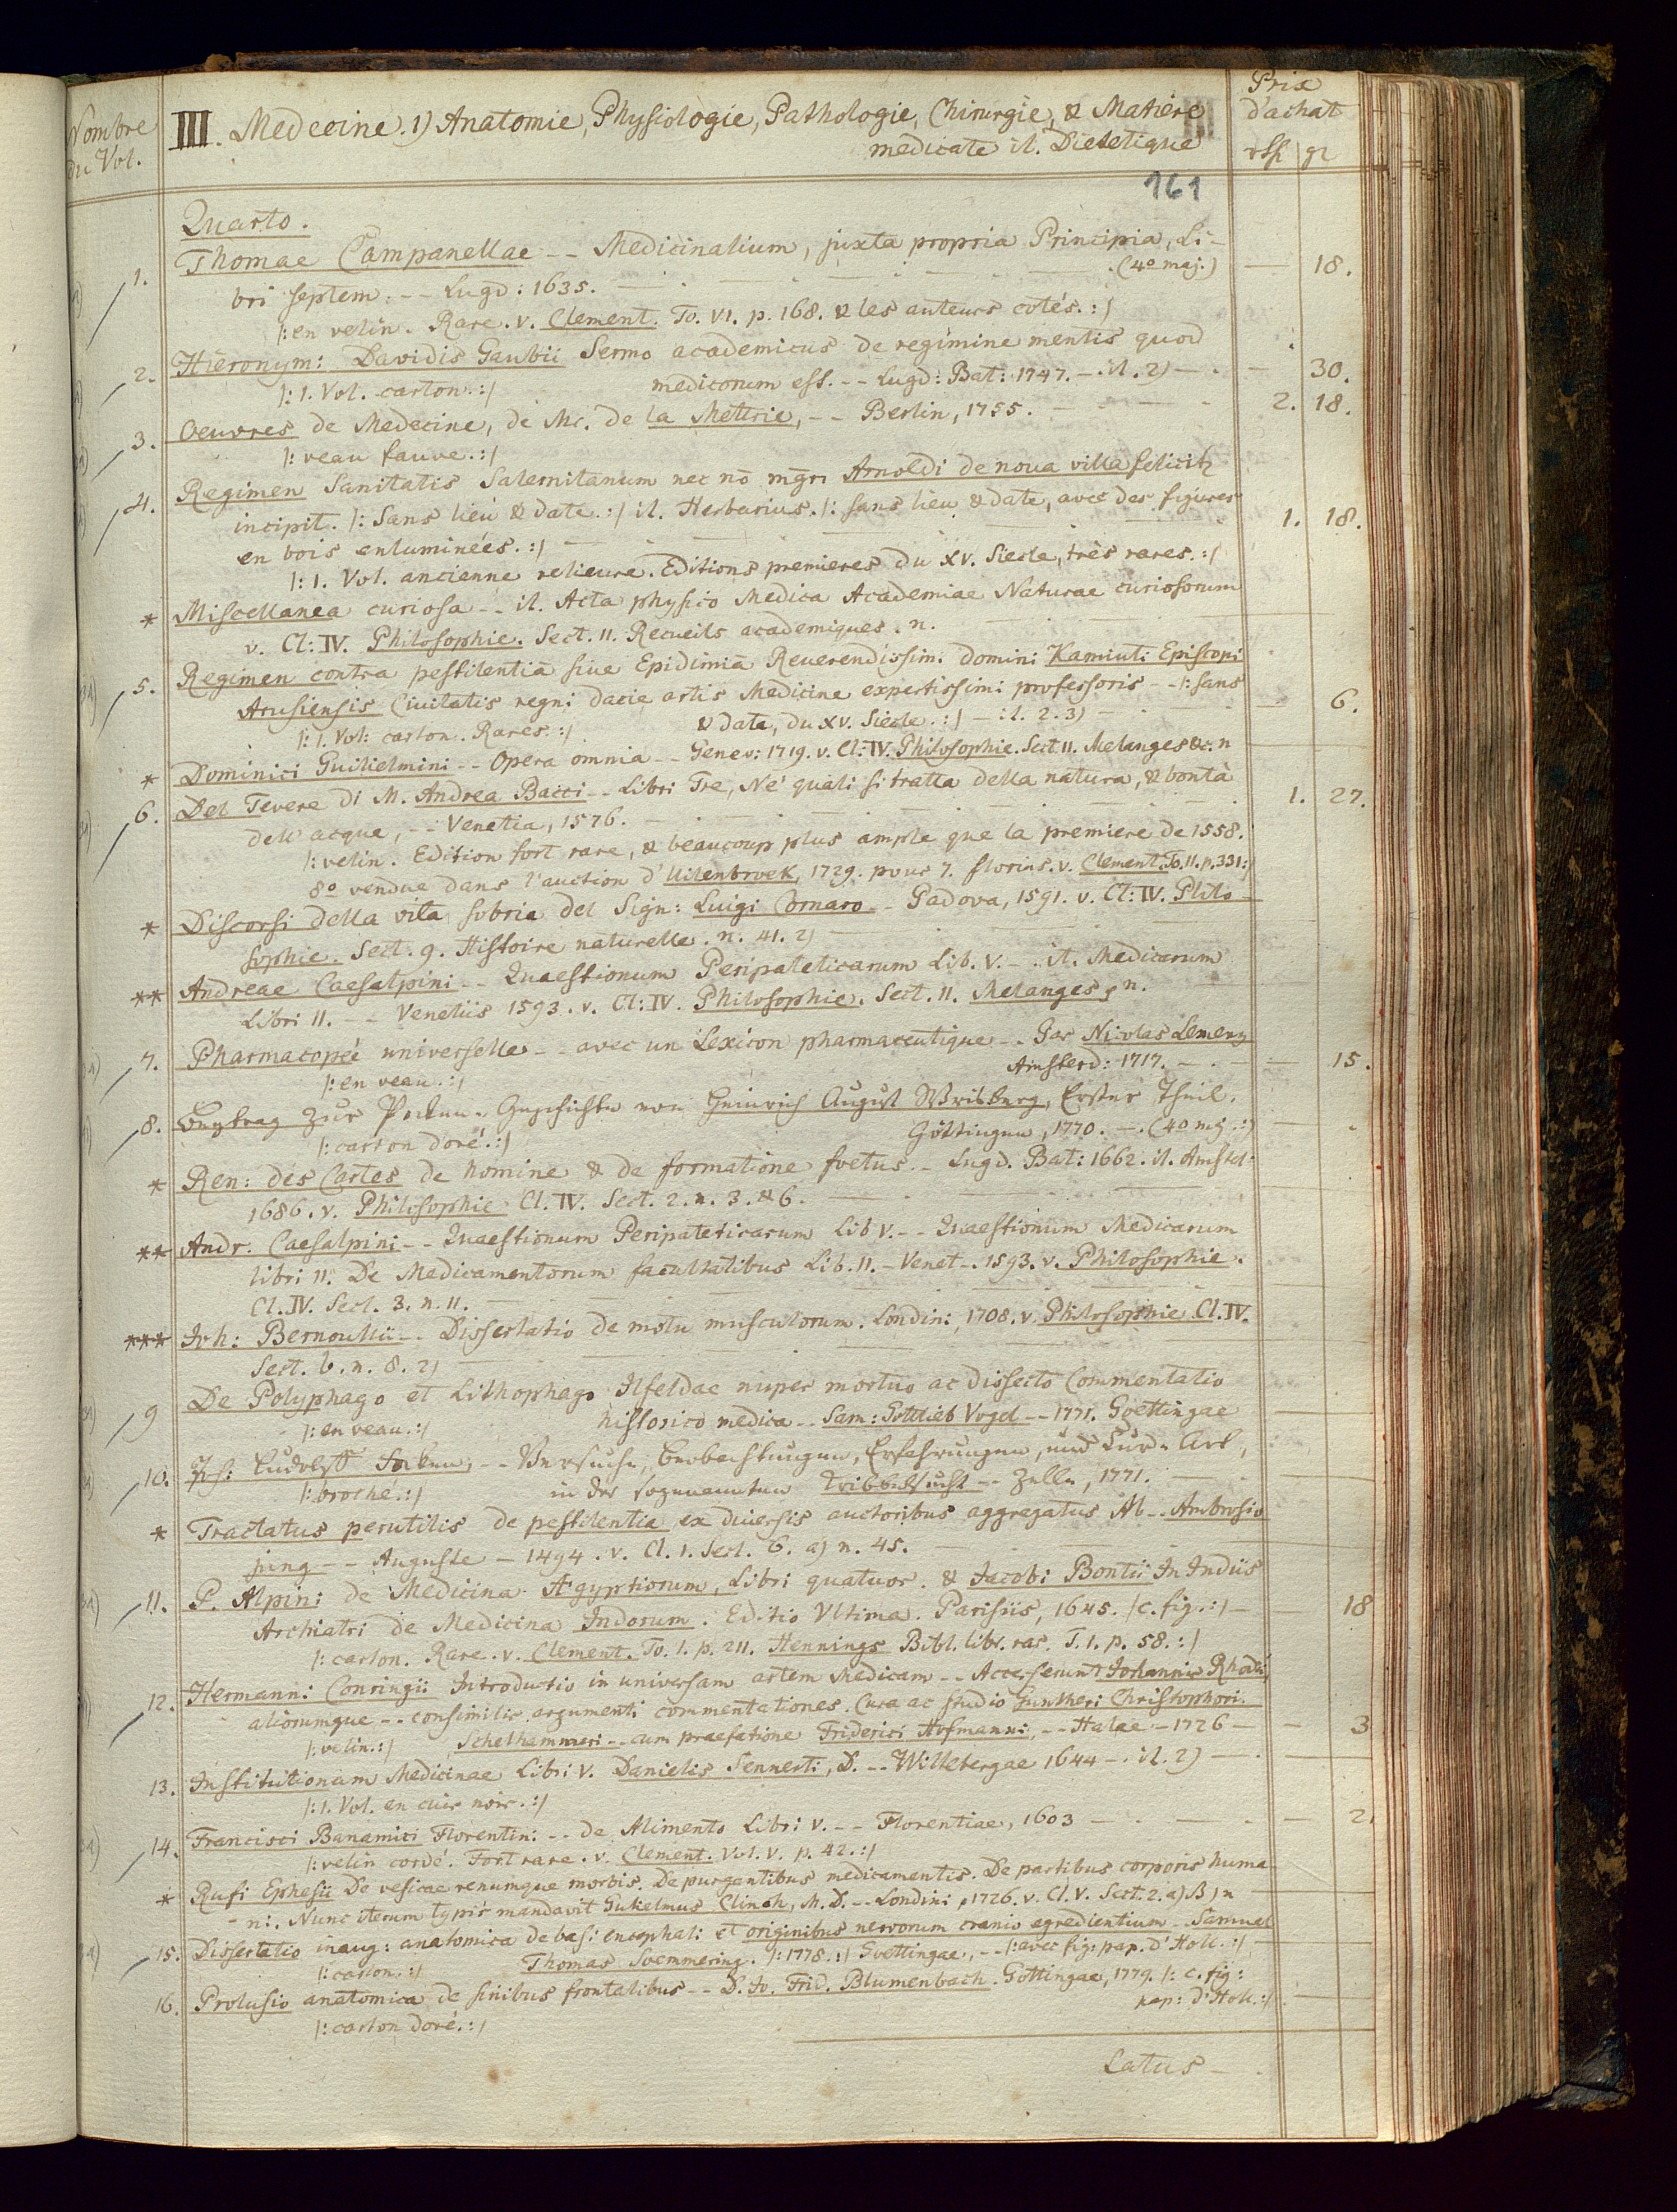 Nombre
du Vol.
III. Medecine. 1) Anatomie, Physiologie, Pathologie, Chirurgie, & Matiere
medicale it. Dietetique
Prix
d'achat
rthl gr
161
Quarto.
1. Thomae Campanellae -- Medicinalium, juxta propria Principia, Li-
bri septem. -- Lugd: 1635. (4° maj.) — 18.
/: en velin. Rare. v. Clement. To. VI. p. 168. & les auteurs cotés. :/
2. Hieronym: Davidis Gaubii Sermo academicus de regimine mentis quod
/: 1. Vol. carton. :/ medicorum est. -- Lugd: Bat: 1747. — it. 2) — 30.
3. Oeuvres de Medecine, de Mr. de la Mettrie, -- Berlin, 1755. 2. 18.
/: veau fauve. :/
4. Regimen Sanitatis Salernitanum nec nō mgri Arnoldi de noua villa felicitr
incipit. /: Sans lieu & date. :/ it. Herbarius. /: sans lieu & date, avec des figures
en bois enluminées. :/ 1. 18.
/: 1. Vol. ancienne relieure. Editions premieres du XV. Siecle, très rares. :/
* Miscellanea curiosa -- it. Acta physico Medica Academiae Naturae curiosorum
v. Cl: IV. Philosophie. Sect. 11. Recueils academiques. n.
5. Regimen contra pestilentiā siue Epidimiā Reuerendissimi domini Kamiuti Episcopi
Arusiensis Ciuitatis regni dacie artis Medicine expertissimi professoris -- /: sans
/: 1. Vol: carton. Rares. :/ & date, du XV. Siecle. :/ — it. 2. 3) — 6.
* Dominici Guilielmini -- Opera omnia -- Genev: 1719. v. Cl: IV. Philosophie. Sect. 11. Melanges &c. n
6. Del Tevere di M. Andrea Bacci -- Libri Tre, Né quali si tratta della natura, & bontà
dell' acque, -- Venetia, 1576. 1. 27.
/: velin. Edition fort rare, & beaucoup plus ample que la premiere de 1558.
8° vendue dans l'auction d'Uilenbroek, 1729. pour 7. florins. v. Clement. To. 11. p. 331 :/
* Discorsi della vita sobria del Sign: Luigi Cornaro -- Padova, 1591. v. Cl: IV. Philo-
sophie. Sect. 9. Histoire naturelle. n. 41. 2)
** Andreae Caesalpini -- Quaestionum Peripateticarum Lib. V. — it. Medicarum
Libri 11. -- Venetiis 1593. v. Cl: IV. Philosophie. Sect. 11. Melanges, n.
7. Pharmacopée universelle -- avec un Lexicon pharmaceutique -- Par Nicolas Lemery
/: en veau. :/ Amsterd: 1717. — 15.
8. Beytrag zur Pocken-Geschichte von Heinrich August Wrisberg, Erster Theil.
/: carton doré. :/ Göttingen, 1770. — (4° mj. :)
* Ren: des Cartes de homine & de formatione foetus -- Lugd. Bat: 1662. it. Amstel:
1686. v. Philosophie Cl. IV. Sect. 2. n. 3. & 6.
** Andr. Caesalpini -- Quaestionum Peripateticarum Lib V. -- Quaestionum Medicarum
libri 11. De Medicamentorum facultatibus Lib. 11. — Venet -. 1593. v. Philosophie.
Cl. IV. Sect. 3. n. 11.
*** Joh: Bernoullii -- Dissertatio de motu musculorum. Londini, 1708. v. Philosophie Cl. IV.
Sect. 6. n. 8. 2)
9 De Polyphago et Lithophago Ilfeldae nuper mortuo ac dissecto Commentatio
/: en veau. :/ historico medica -- Sam: Gottlieb Vogel -- 1771. Goettingae
10. Joh: Ludolff -- Versuche, Beobachtungen, Erfahrungen, und Cur-Art,
/: broché. :/ in der sogenannten Kribbelsucht -- Zelle, 1771.
* Tractatus perutilis de pestilentia ex diuersis auctoribus aggregatus Ab -- Ambrosio
jung -- Auguste — 1494. v. Cl. 1. Sect. 6. a) n. 45.
11. P. Alpini de Medicina Ægyptiorum, Libri quatuor. & Jacobi Bontii In Indiis
Archiatri de Medicina Indorum. Editio Vltima. Parisiis, 1645. /c. fig. :/ — 18
/: carton. Rare. v. Clement. To. 1. p. 211. Hennings Bibl. libr. rar. T. 1. p. 58. :/
12. Hermanni Conringii Introductio in universam artem Medicam -- Accesserunt Johannis Rhodii,
aliorumque -- consimilis argumenti commentationes. Cura ac studio Guntheri Christophori.
/: velin. :/ Schelhammeri -- cum praefatione Friderici Hofmanni, -- Halae — 1726 — 3
13. Institutionum Medicinae Libri V. Danielis Sennerti, D. -- Wittebergae 1644 — it. 2)
/: 1. Vol. en cuir noir. :/
14. Francisci Banamici Florentini -- de Alimento Libri V. -- Florentiae, 1603 — 2.
/: velin cordé. Fort rare. v. Clement. Vol. V. p. 42. :/
* Rufi Ephesii De vesicae renumque morbis. De purgantibus medicamentis. De partibus corporis huma-
ni. Nunc iterum typis mandavit Gulielmus Clinch, M. D. -- Londini, 1726. v. Cl. V. Sect. 2. a) ß) n
15. Dissertatio inaug: anatomica de basi encephali et originibus nervorum cranio egredientium -- Samuel
/: carton. :/ Thomas Soemmering. /: 1778. :/ Goettingae, -- /: avec fig: pap. d'Holl. :/
16. Prolusio anatomica de sinibus frontalibus -- D. Jo. Frid. Blumenbach. Göttingae, 1779. /: c. fig:
/: carton doré. :/ pap: d'Holl. :/
Latus